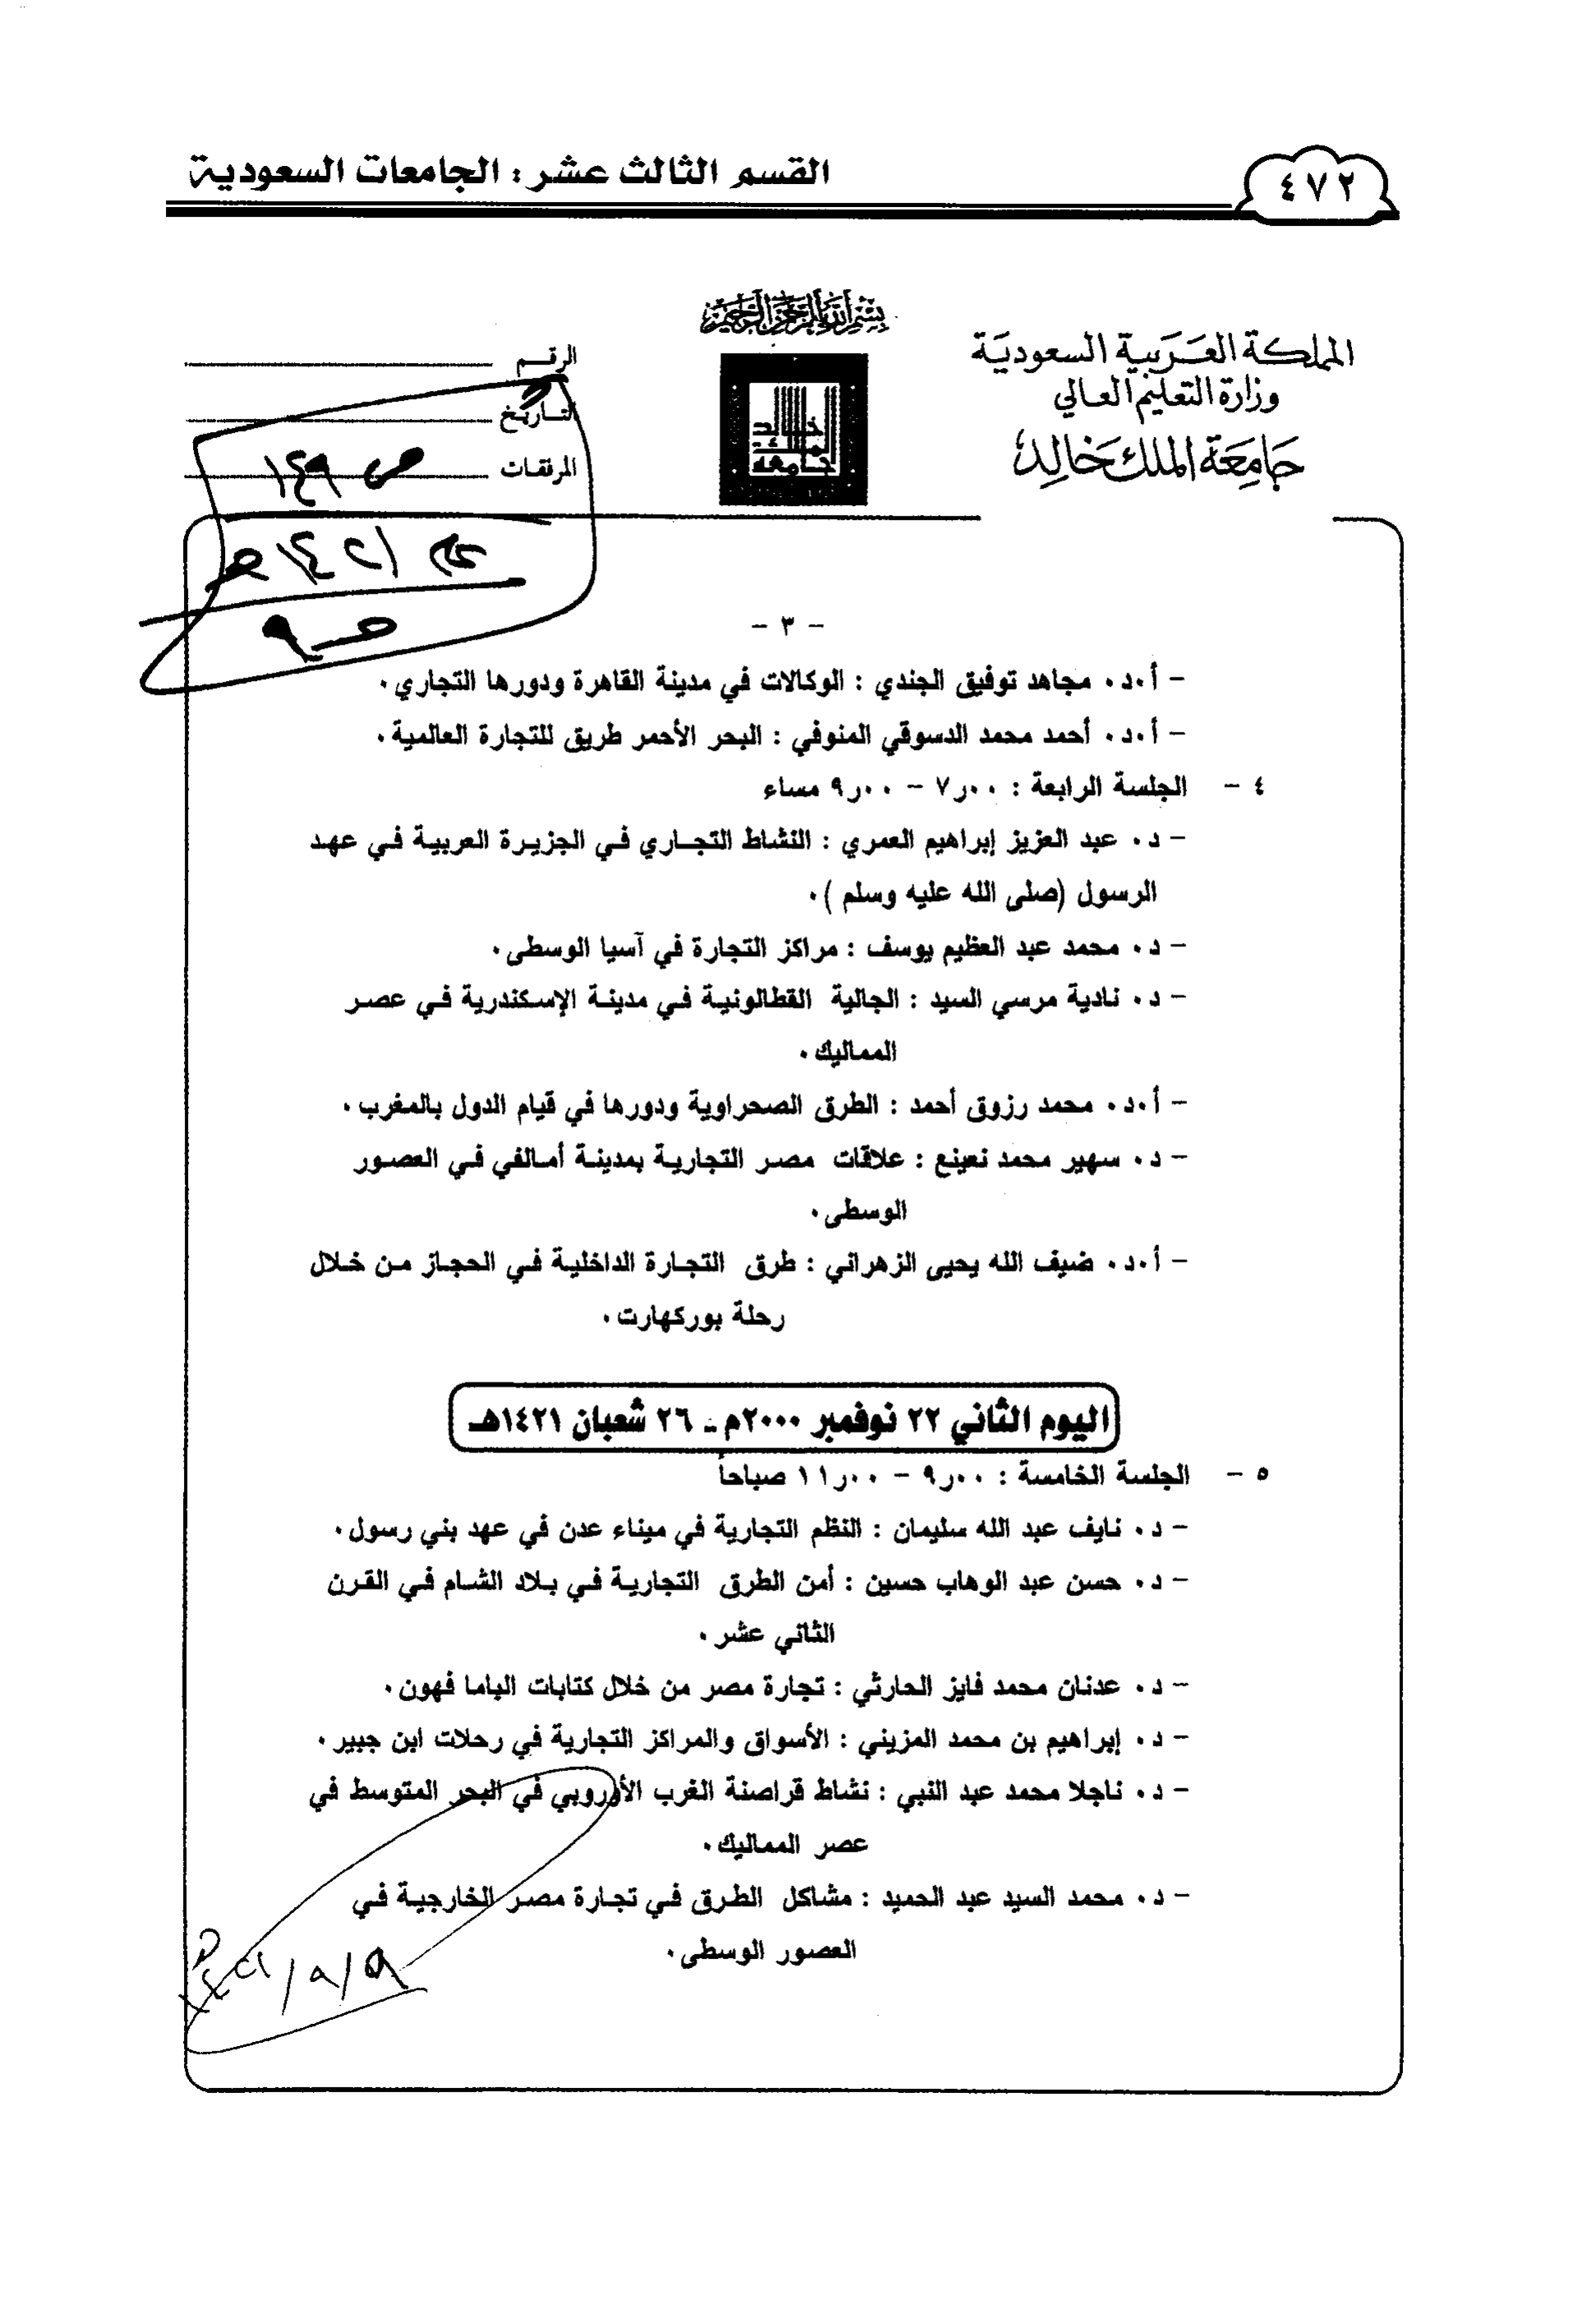 ٤٧٢
القسم الثالث عشر : الجامعات السعودية
بسم الله الرحمن الرحيم
المملكة العربية السعودية
وزارة التعليم العالي
جامعة الملك خالد
الرقم
التاريخ
المرفقات
ص ١٤٩
عام ١٤٢١هـ
- ٣ -
- أ٠د٠ مجاهد توفيق الجندي : الوكالات في مدينة القاهرة ودورها التجاري٠
- أ٠د٠ أحمد محمد الدسوقي المنوفي : البحر الأحمر طريق للتجارة العالمية٠
٤ - الجلسة الرابعة : ٠٠ر٧ - ٠٠ر٩ مساء
- د٠ عبد العزيز إبراهيم العمري : النشاط التجاري في الجزيرة العربية في عهد
الرسول (صلى الله عليه وسلم )٠
- د٠ محمد عبد العظيم يوسف : مراكز التجارة في آسيا الوسطى٠
- د٠ نادية مرسي السيد : الجالية القطالونية في مدينة الإسكندرية في عصر
المماليك٠
- أ٠د٠ محمد رزوق أحمد : الطرق الصحراوية ودورها في قيام الدول بالمغرب٠
- د٠ سهير محمد نعينع : علاقات مصر التجارية بمدينة أمالفي في العصور
الوسطى٠
- أ٠د٠ ضيف الله يحيى الزهراني : طرق التجارة الداخلية في الحجاز من خلال
رحلة بوركهارت٠
اليوم الثاني ٢٢ نوفمبر ٢٠٠٠م - ٢٦ شعبان ١٤٢١هـ
٥ - الجلسة الخامسة : ٠٠ر٩ - ٠٠ر١١ صباحاً
- د٠ نايف عبد الله سليمان : النظم التجارية في ميناء عدن في عهد بني رسول٠
- د٠ حسن عبد الوهاب حسين : أمن الطرق التجارية في بلاد الشام في القرن
الثاني عشر٠
- د٠ عدنان محمد فايز الحارثي : تجارة مصر من خلال كتابات الباما فهون٠
- د٠ إبراهيم بن محمد المزيني : الأسواق والمراكز التجارية في رحلات ابن جبير٠
- د٠ ناجلا محمد عبد النبي : نشاط قراصنة الغرب الأوروبي في البحر المتوسط في
عصر المماليك٠
- د٠ محمد السيد عبد الحميد : مشاكل الطرق في تجارة مصر الخارجية في
العصور الوسطى٠